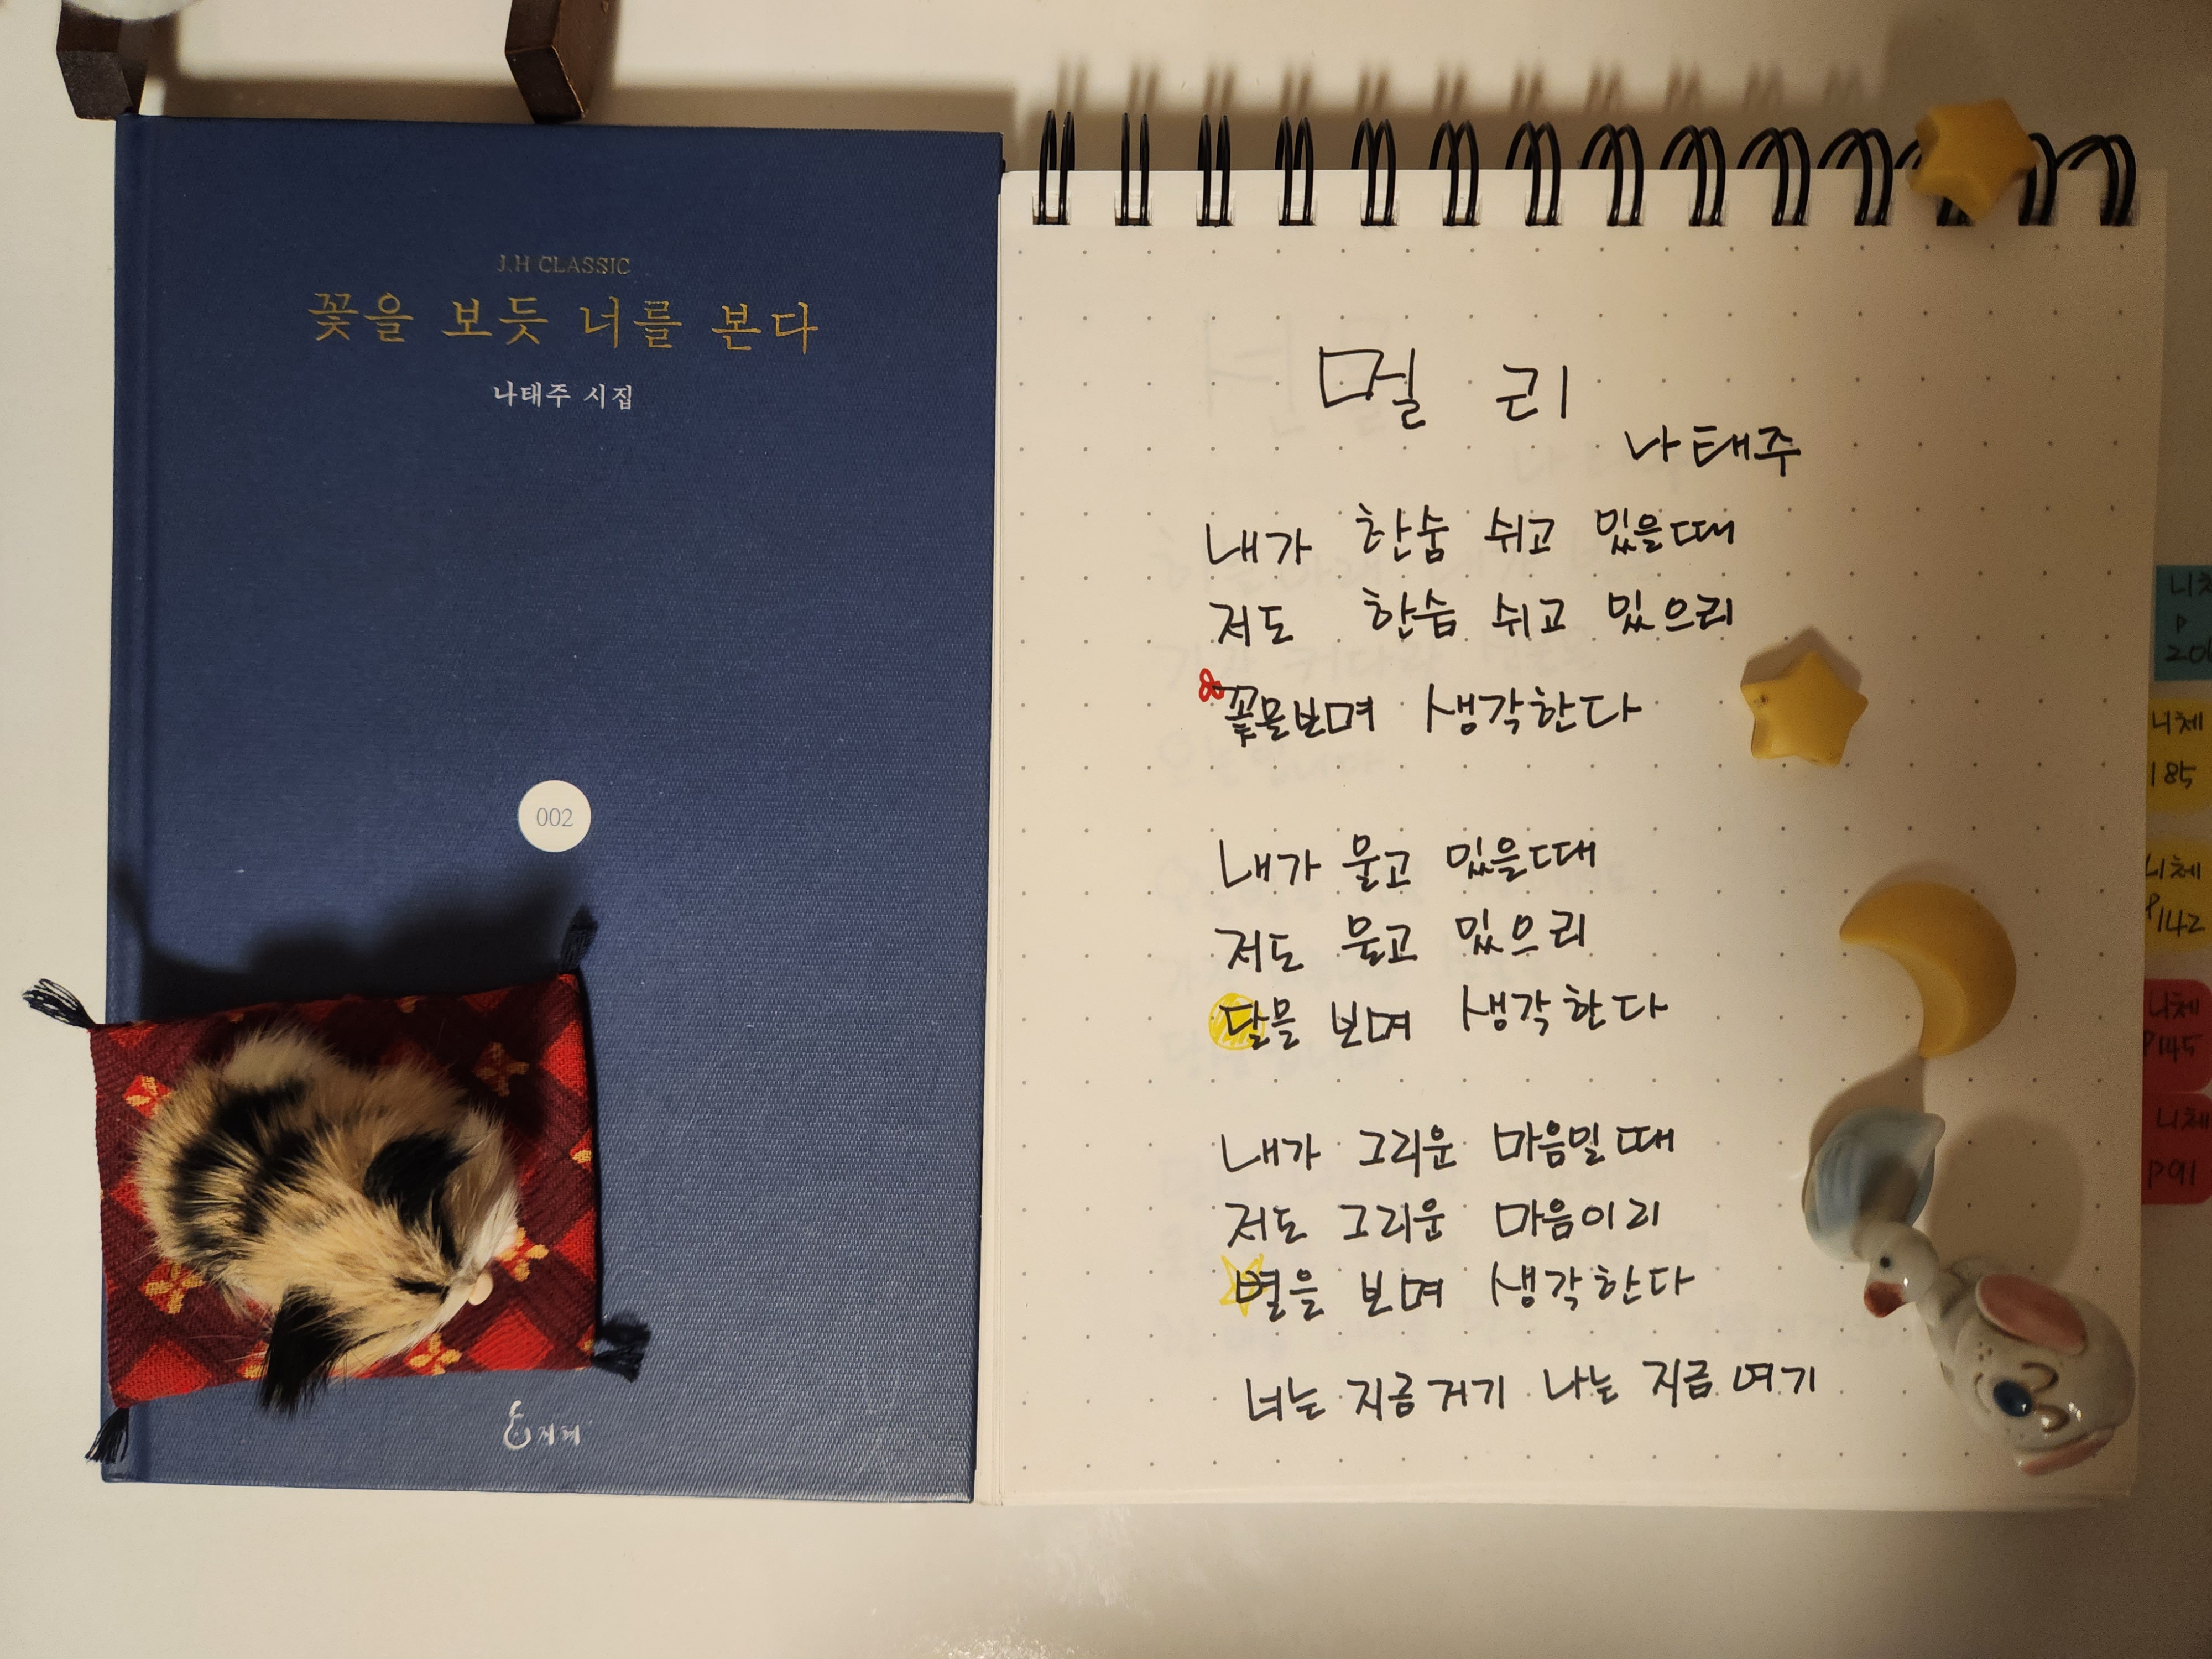 J.H CLASSIC
꽃을 보듯 너를 본다
나태주 시집
002
지혜
멀리
나태주
내가 한숨 쉬고 있을때
저도 한숨 쉬고 있으리
꽃을보며 생각한다
내가 울고 있을때
저도 울고 있으리
달을 보며 생각한다
내가 그리운 마음일 때
저도 그리운 마음이리
별을 보며 생각한다
너는 지금 거기 나는 지금 여기
니체
185
니체
P142
니체
P145
니체
P91